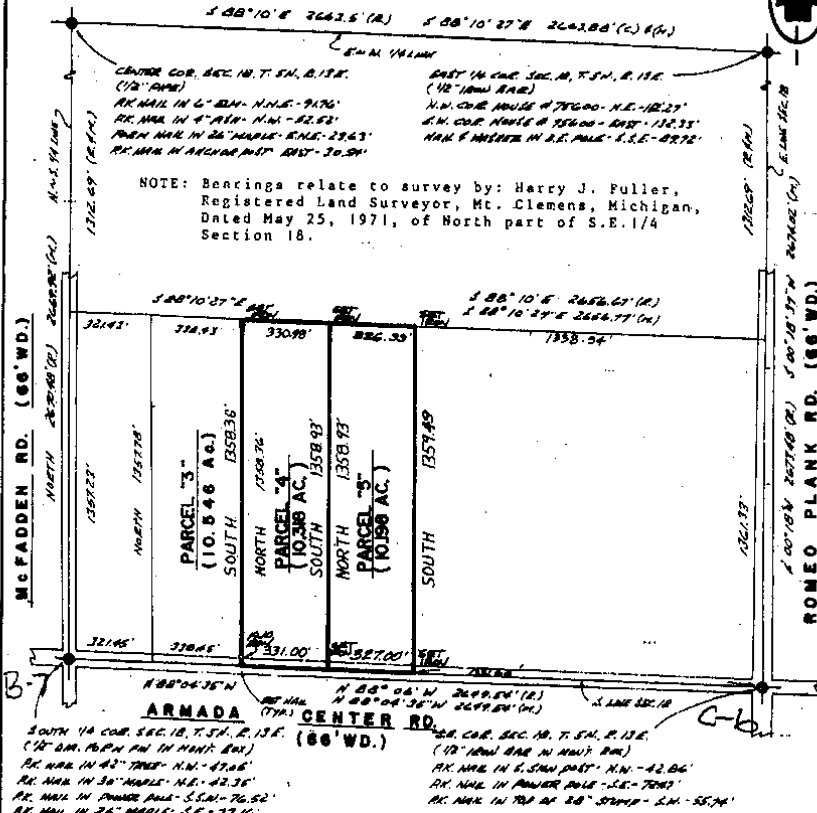 S 88°10' E 2662.5' (R.) S 88°10'27" E 2663.88' (C.) & (M.)
E. & W. 1/4 LINE
CENTER COR. SEC. 18, T. 5N., R. 13E.
(1/2" PIPE)
P.K. NAIL IN 6" ELM - N.N.E. - 91.76'
P.K. NAIL IN 4" ASH - N.W. - 52.52'
FOUND NAIL IN 26" MAPLE - E.N.E. - 29.63'
P.K. NAIL IN ANCHOR POST EAST - 30.54'
EAST 1/4 COR. SEC. 18, T. 5N., R. 13E.
(1/2" IRON BAR)
N.W. COR. HOUSE # 75600 - N.E. - 112.27'
S.W. COR. HOUSE # 75600 - EAST - 132.33'
NAIL & WASHER IN S.E. POLE - S.S.E. - 89.72'
NOTE: Bearings relate to survey by: Harry J. Fuller,
Registered Land Surveyor, Mt. Clemens, Michigan,
Dated May 25, 1971, of North part of S.E.1/4
Section 18.
N. & S. 1/4 LINE
1312.69' (R. & M.)
E. LINE SEC. 18
1312.69' (R. & M.)
S 88°10'27" E
SET IRON
SET IRON
SET IRON
S 88°10' E 2656.67' (R.)
S 88°10'27" E 2656.77' (M.)
321.43' 338.43 330.98' 326.99' 1338.94'
McFADDEN RD. (66' WD.)
NORTH 2670.48' (R.) 2669.92' (M.)
1357.23'
NORTH 1357.78'
PARCEL "3"
(10.546 Ac.)
SOUTH 1358.36'
NORTH 1358.36'
PARCEL "4"
(10.318 AC.)
SOUTH 1358.93'
NORTH 1358.93'
PARCEL "5"
(10.198 AC.)
SOUTH 1359.49
1361.33'
S 00°18' W 2673.48' (R.) S 00°18'37" W 2674.02' (M.)
ROMEO PLANK RD. (66' WD.)
321.45' 338.45' 331.00' 327.00'
SET
SET IRON
B-7
N 88°04'35" W
SET NAIL (TYP.)
N 88°06' W 2649.54' (R.)
N 88°04'35" W 2649.54' (M.)
S. LINE SEC. 18
C-6
ARMADA CENTER RD.
(66' WD.)
SOUTH 1/4 COR. SEC. 18, T. 5N., R. 13E.
(1/2" DIA. FOUND PIN IN MON'T. BOX)
P.K. NAIL IN 42" TREE - N.W. - 47.06'
P.K. NAIL IN 30" MAPLE - N.E. - 42.35'
P.K. NAIL IN POWER POLE - S.S.W. - 76.52'
P.K. NAIL IN 26" MAPLE - S.E.
S.E. COR. SEC. 18, T. 5N., R. 13E.
(1/2" IRON BAR IN MON'T. BOX)
P.K. NAIL IN S. SIGN POST - N.W. - 42.86'
P.K. NAIL IN POWER POLE - S.E.
P.K. NAIL IN TOP OF 28" STUMP - S.W. - 55.74'